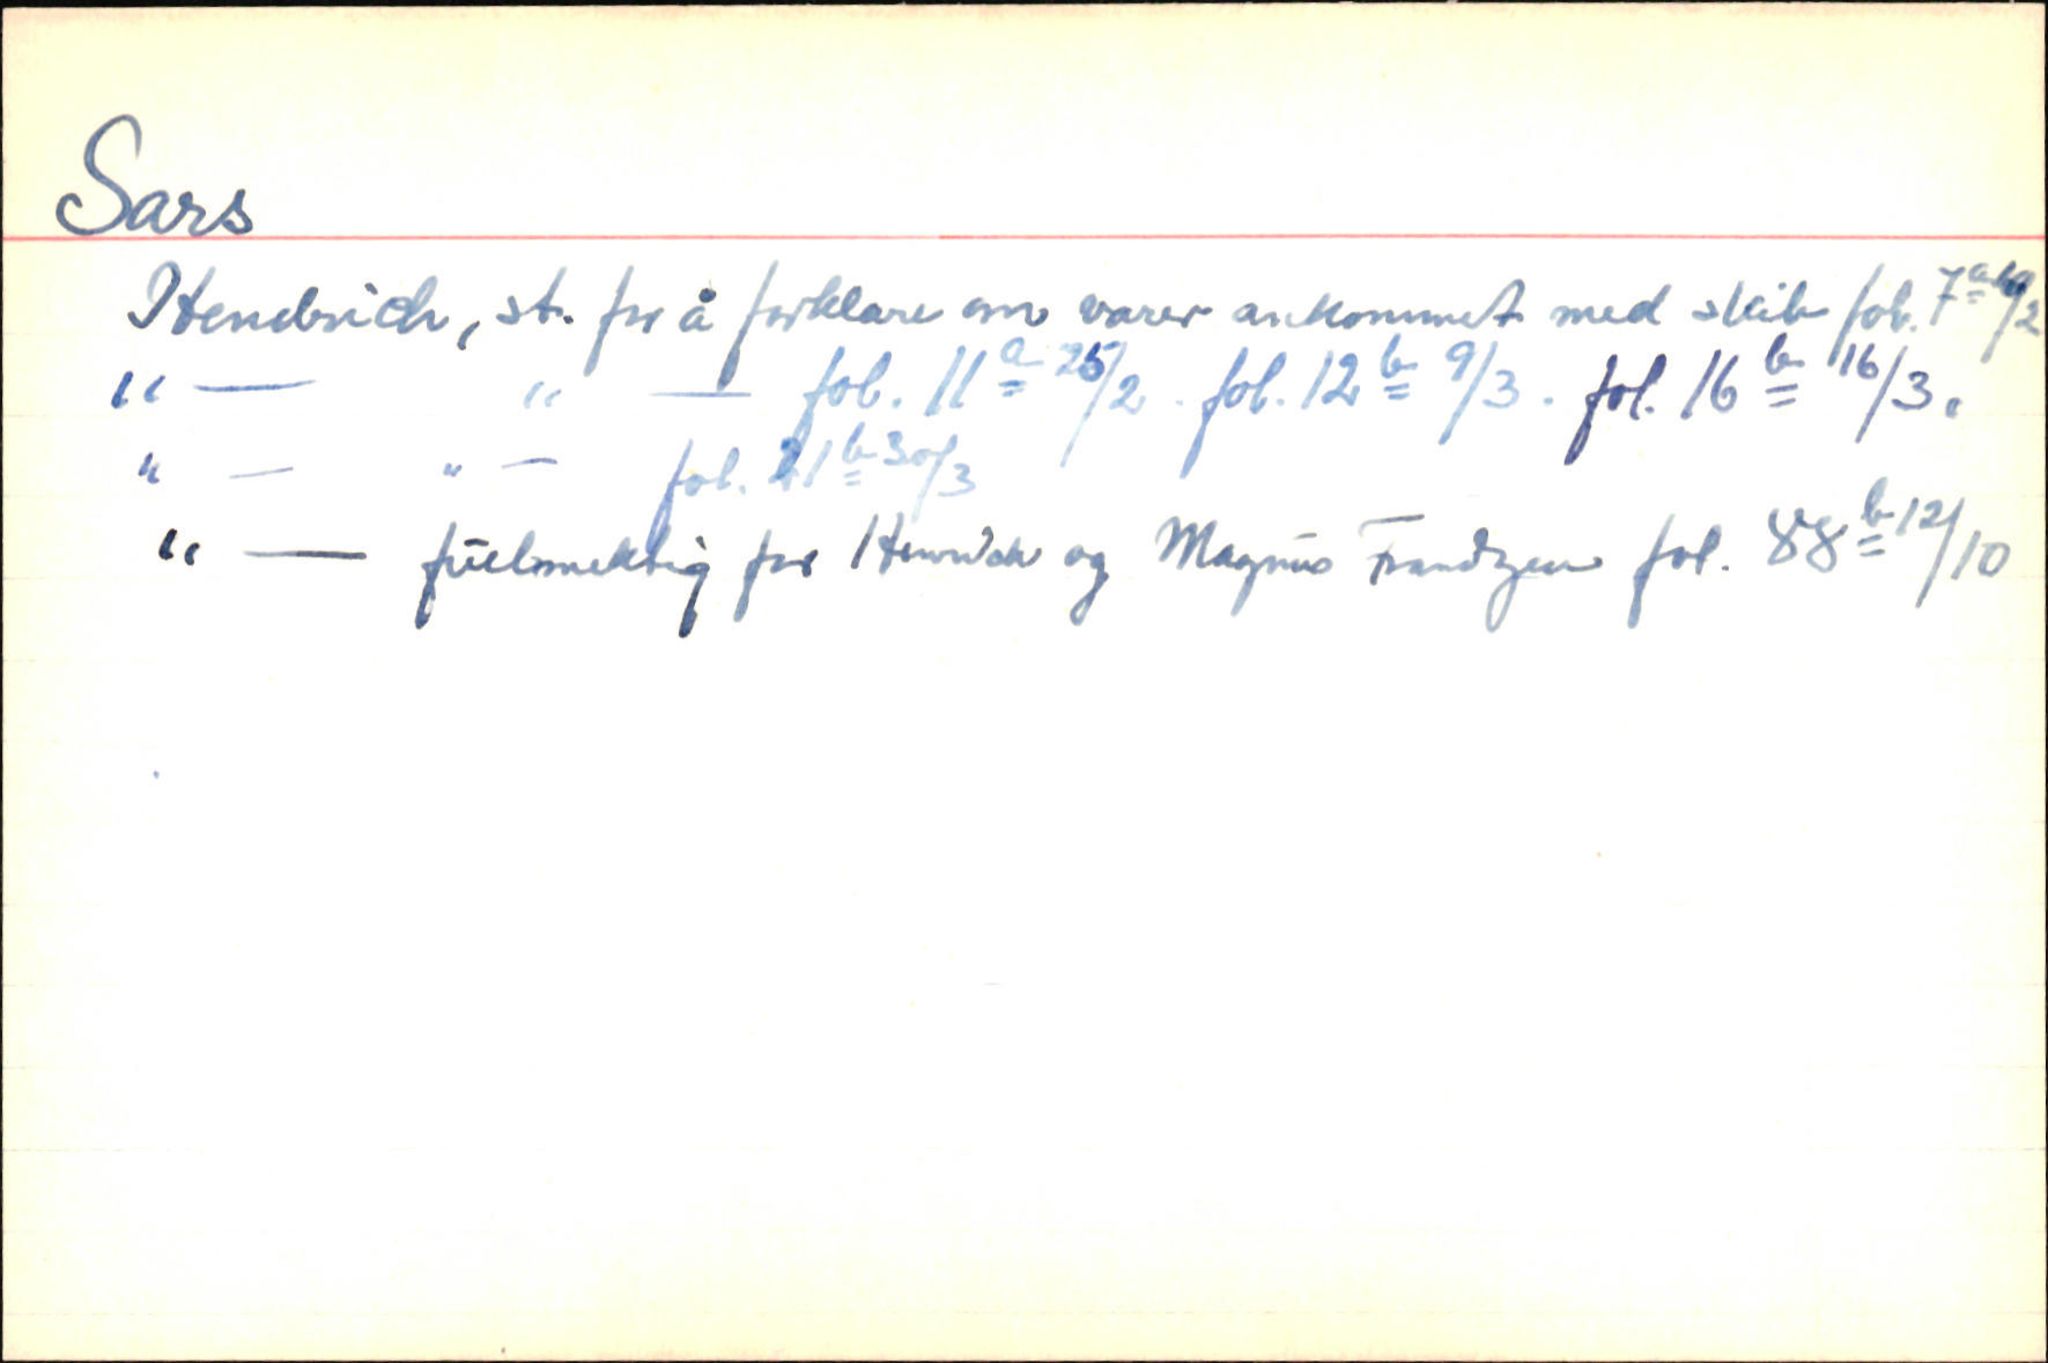 Sars
Hendrich, st. for å forklare om varer ankommet med skib fol. 7a /2
" — " — fol. 11a 25/2. fol. 12b 9/3. fol. 16b 16/3.
" — " — fol. 21b 30/3
" — fuelmektig for Henrich og Magnus Frandzen fol. 88b 12/10